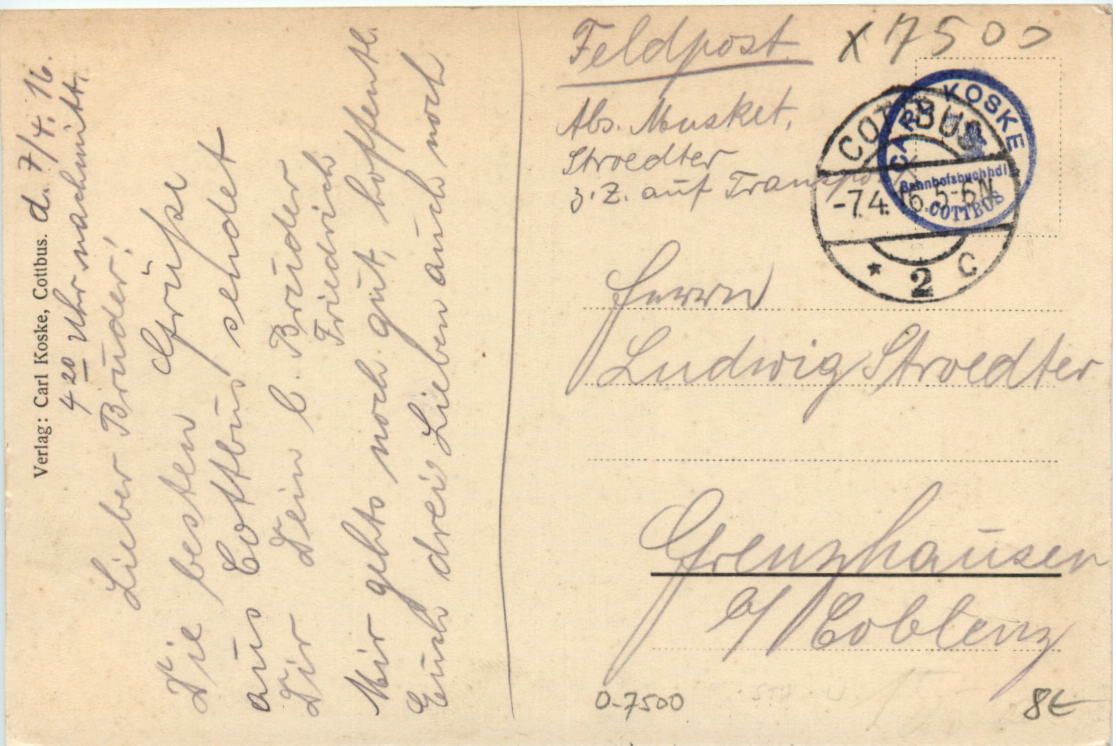 Verlag: Carl Koske, Cottbus.
d. 7/4. 16.
4 20 Uhr nachmitt.
Lieber Bruder!
Die besten Grüße
aus Cottbus sendet
Dir Dein l. Bruder
Friedrich
Mir gehts noch gut, hoffentl.
Euch drei Lieben auch noch
Feldpost
X 7500
Abs. Musket.
Stroedter
z. Z. auf Transpo
COTTBUS
-7.4.16.5-6N
* 2 C
CARL KOSKE
Bahnhofsbuchhdl
COTTBUS
Herrn
Ludwig Stroedter
Grenzhausen
b/ Coblenz
0-7500
8€